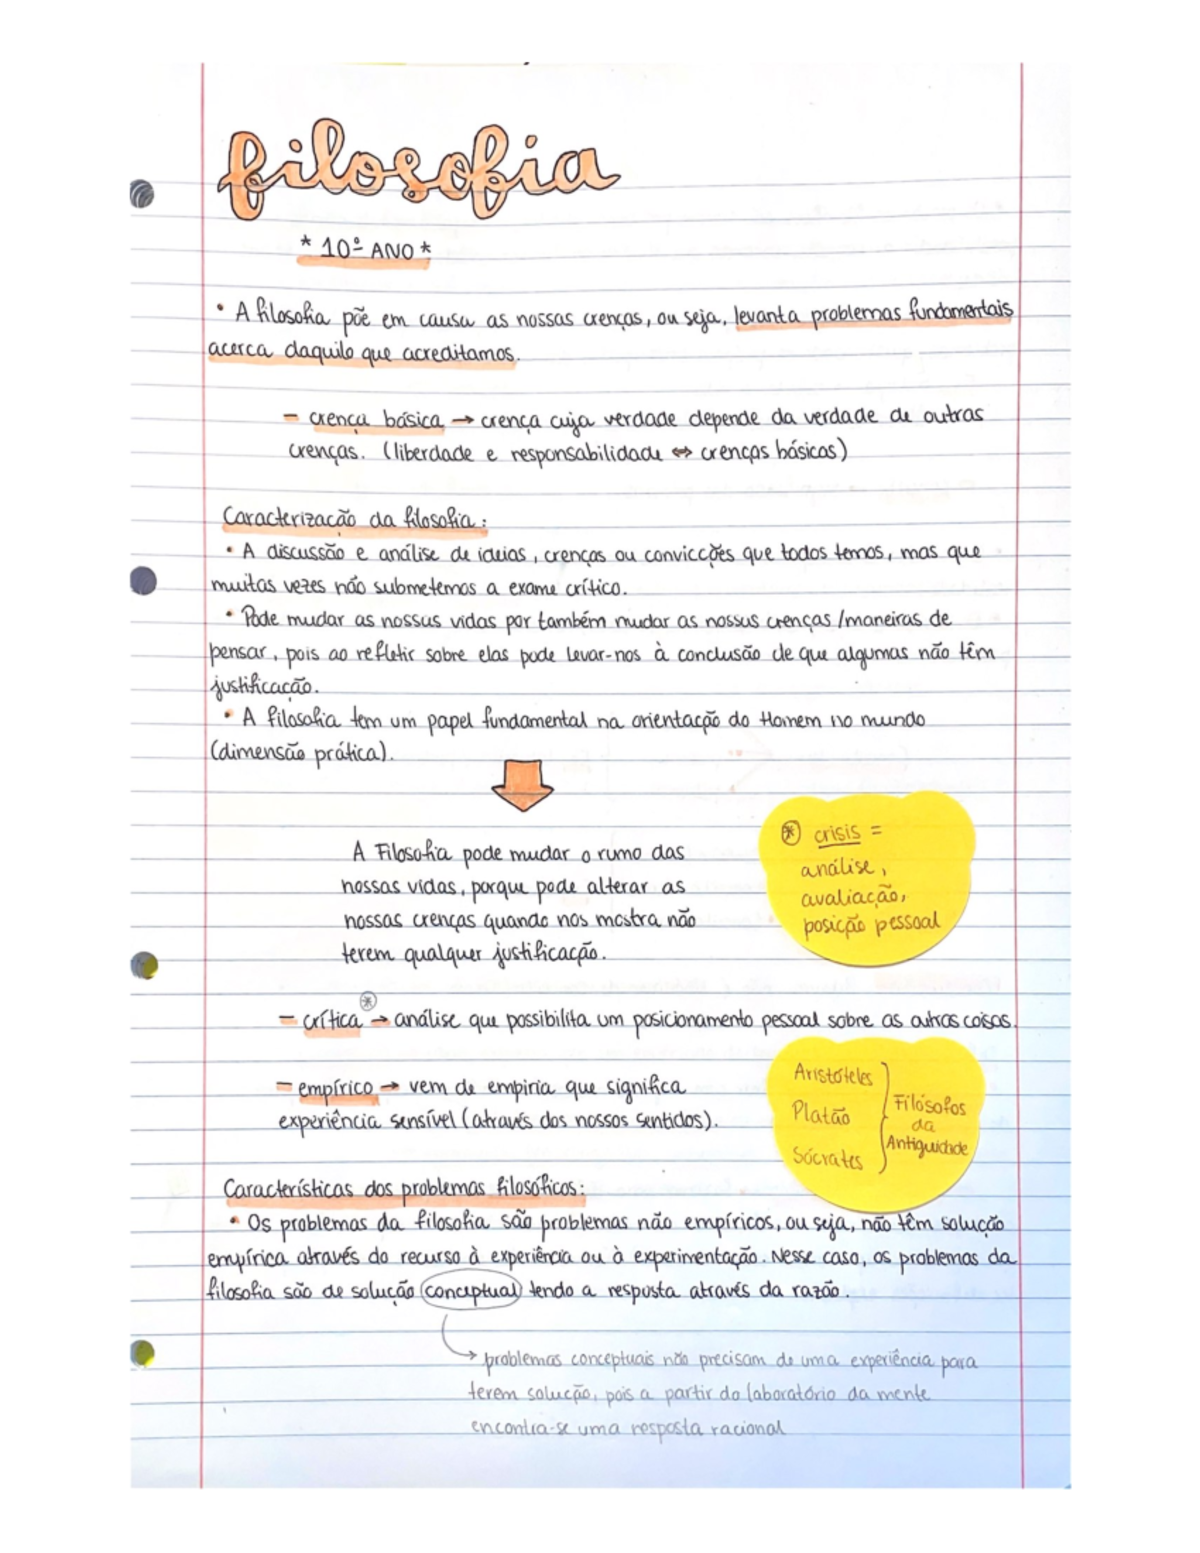 filosofia
* 10º ANO *
• A filosofia põe em causa as nossas crenças, ou seja, levanta problemas fundamentais
acerca daquilo que acreditamos.
- crença básica → crença cuja verdade depende da verdade de outras
crenças. (liberdade e responsabilidade ⇔ crenças básicas)
Caracterização da filosofia:
• A discussão e análise de ideias, crenças ou convicções que todos temos, mas que
muitas vezes não submetemos a exame crítico.
• Pode mudar as nossas vidas por também mudar as nossas crenças/maneiras de
pensar, pois ao refletir sobre elas pode levar-nos à conclusão de que algumas não têm
justificação.
• A filosofia tem um papel fundamental na orientação do Homem no mundo
(dimensão prática).
A Filosofia pode mudar o rumo das
nossas vidas, porque pode alterar as
nossas crenças quando nos mostra não
terem qualquer justificação.
* crisis =
análise,
avaliação,
posição pessoal
- crítica * → análise que possibilita um posicionamento pessoal sobre as outras coisas.
- empírico → vem de empiria que significa
experiência sensível (através dos nossos sentidos).
Aristóteles
Platão
Sócrates
Filósofos
da
Antiguidade
Características dos problemas filosóficos:
• Os problemas da filosofia são problemas não empíricos, ou seja, não têm solução
empírica através do recurso à experiência ou à experimentação. Nesse caso, os problemas da
filosofia são de solução conceptual tendo a resposta através da razão.
→ problemas conceptuais não precisam de uma experiência para
terem solução, pois a partir do laboratório da mente
encontra-se uma resposta racional